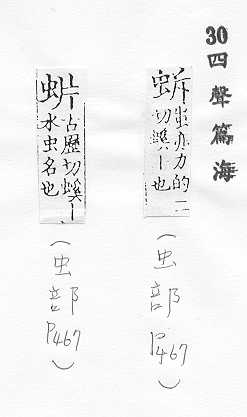 30 四聲篇海
亦力的二
切螇丨也
(虫部 P.467)
古歷切螇丨
水虫名也
(虫部 P467)